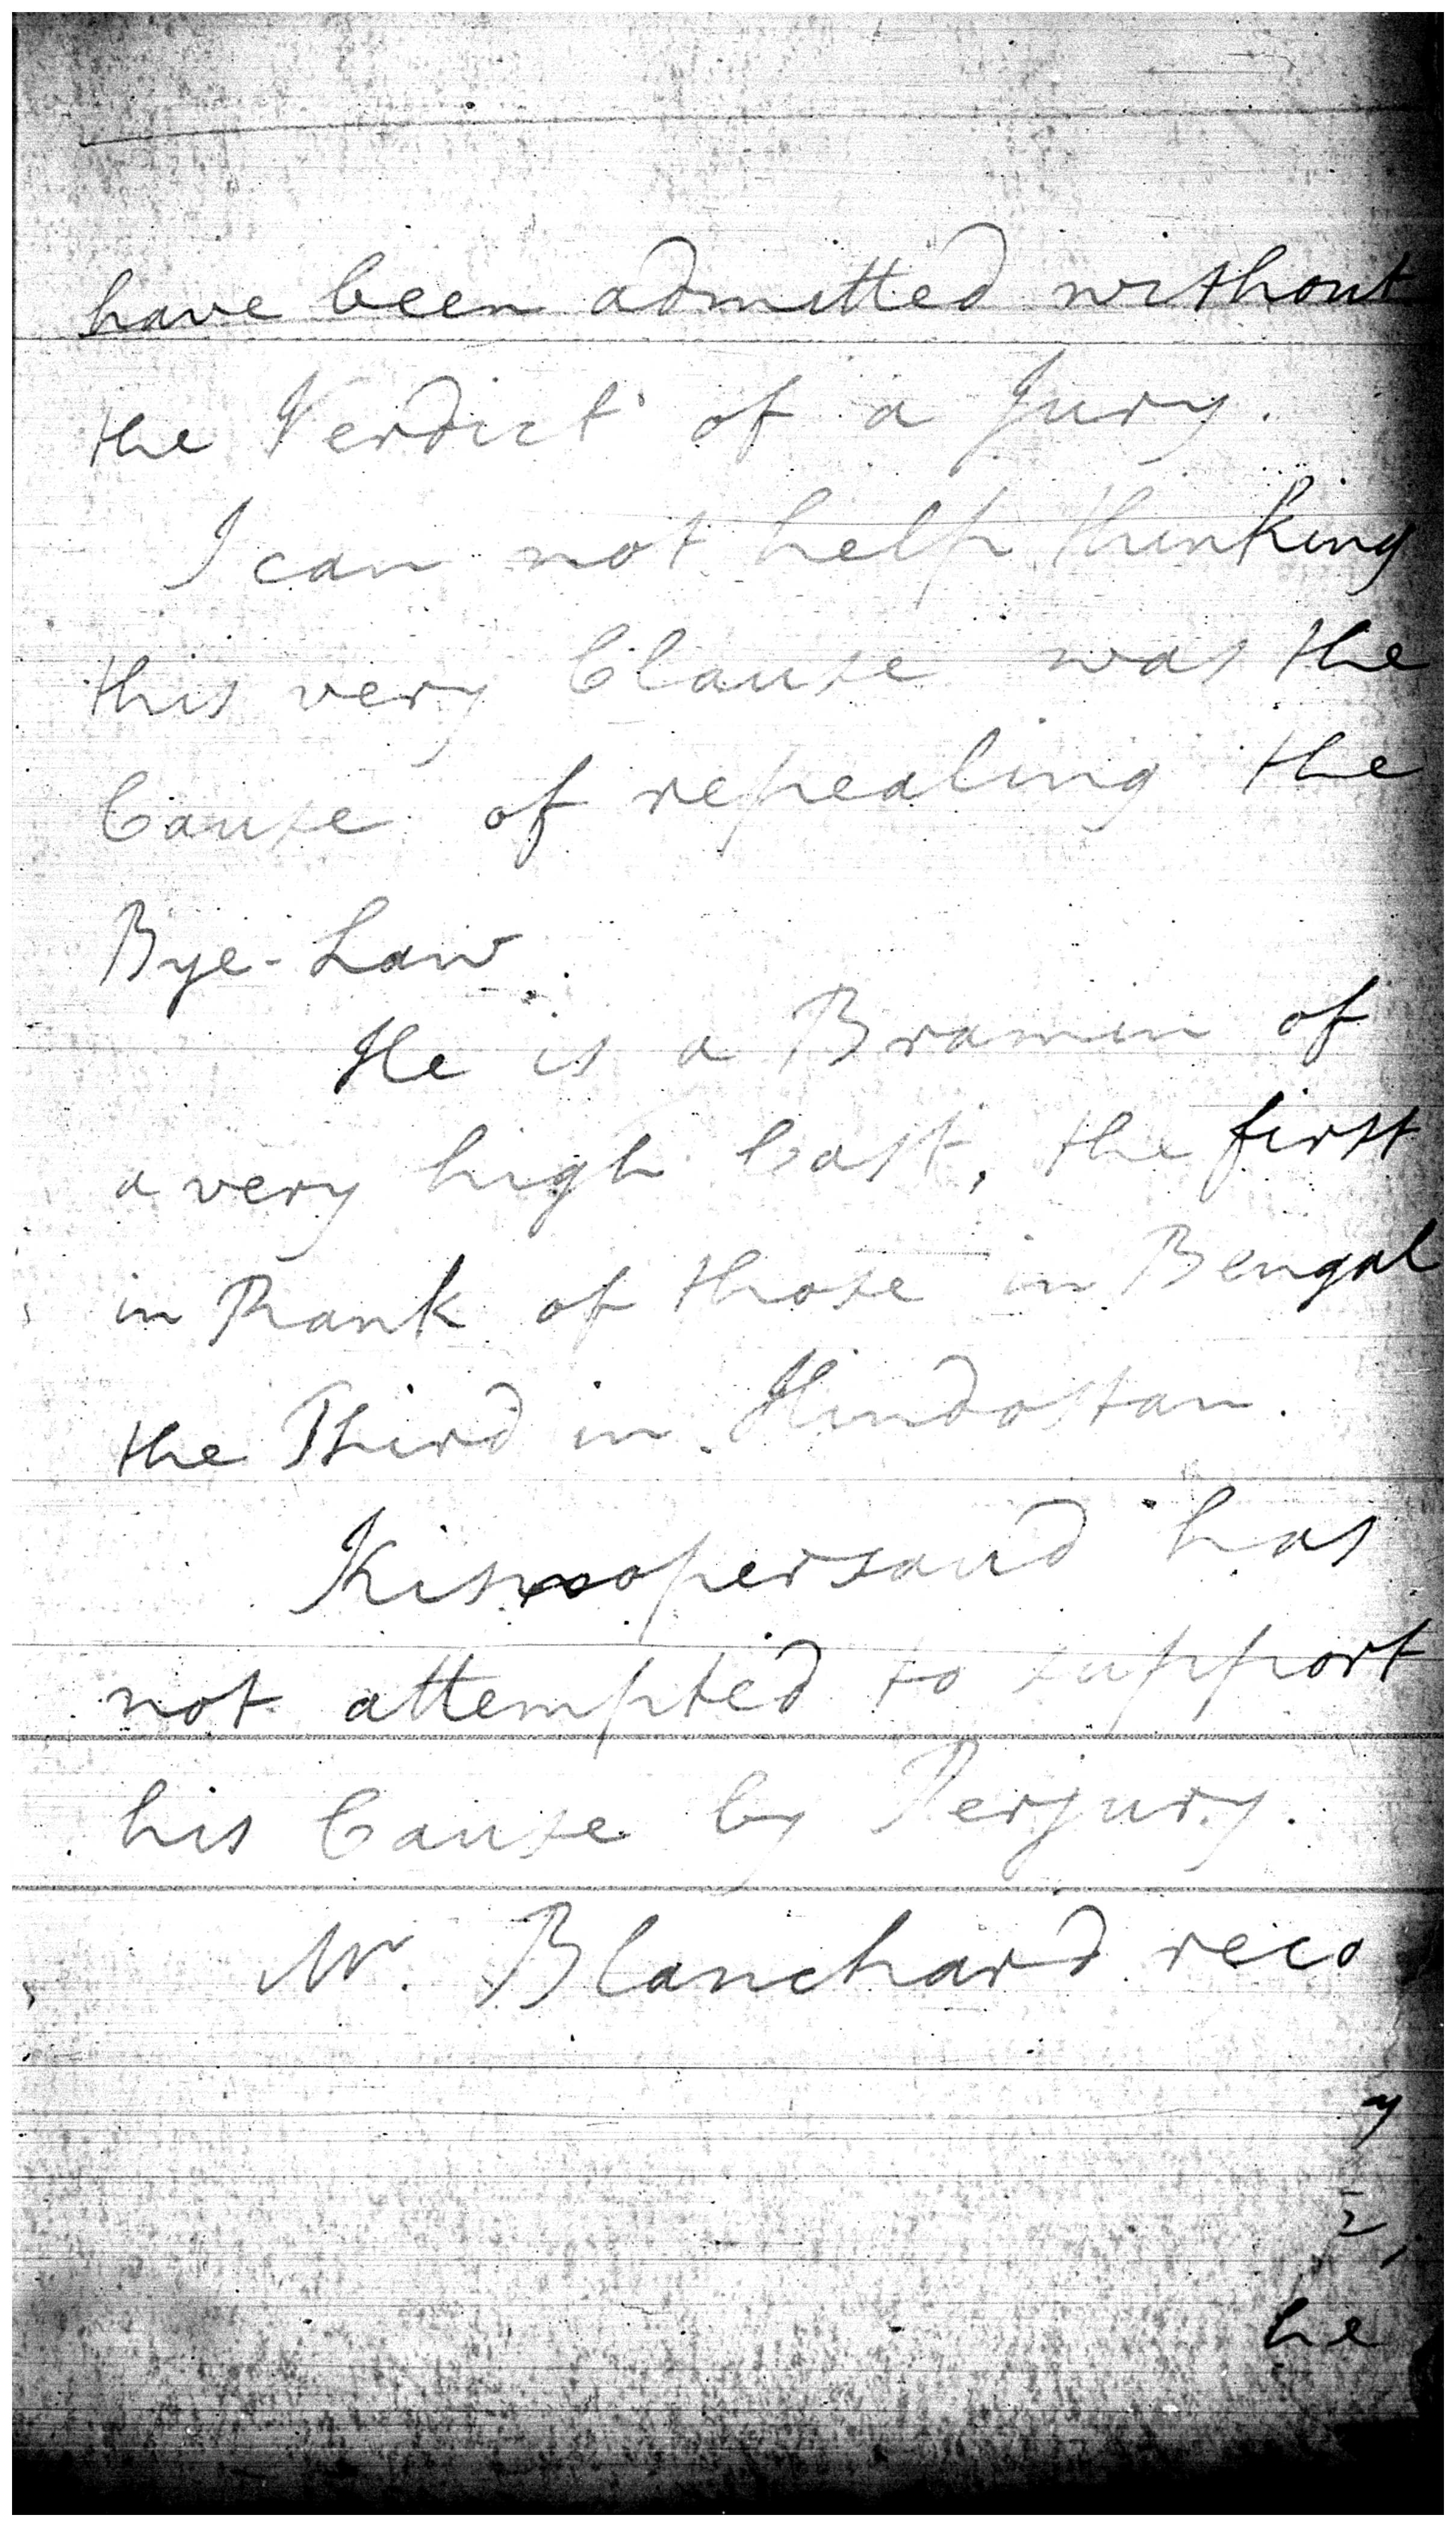 have been admitted without
the Verdict of a Jury.
I can not help thinking
this very Clause was the
Cause of repealing the
Bye-Law
He is a Bramin of
a very high Cast, the first
in Rank of those in Bengal
the Third in Hindostan.
has
not attempted to support
his Cause by Perjury.
Mr. Blanchard reco
y
2
he